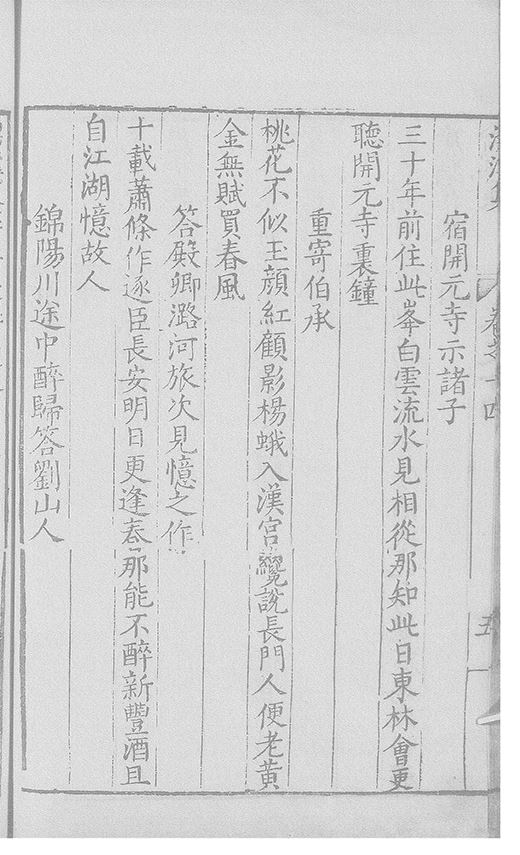 卷之十四
五
宿開元寺示諸子
三十年前住此峯白雲流水見相從那知此日東林會更
聽開元寺裏鐘
重寄伯承
桃花不似玉顔紅顧影楊蛾入漢宮纔說長門人便老黄
金無賦買春風
答殿卿潞河旅次見憶之作
十載蕭條作逐臣長安明日更逢春那能不醉新豐酒且
自江湖憶故人
錦陽川途中醉歸答劉山人